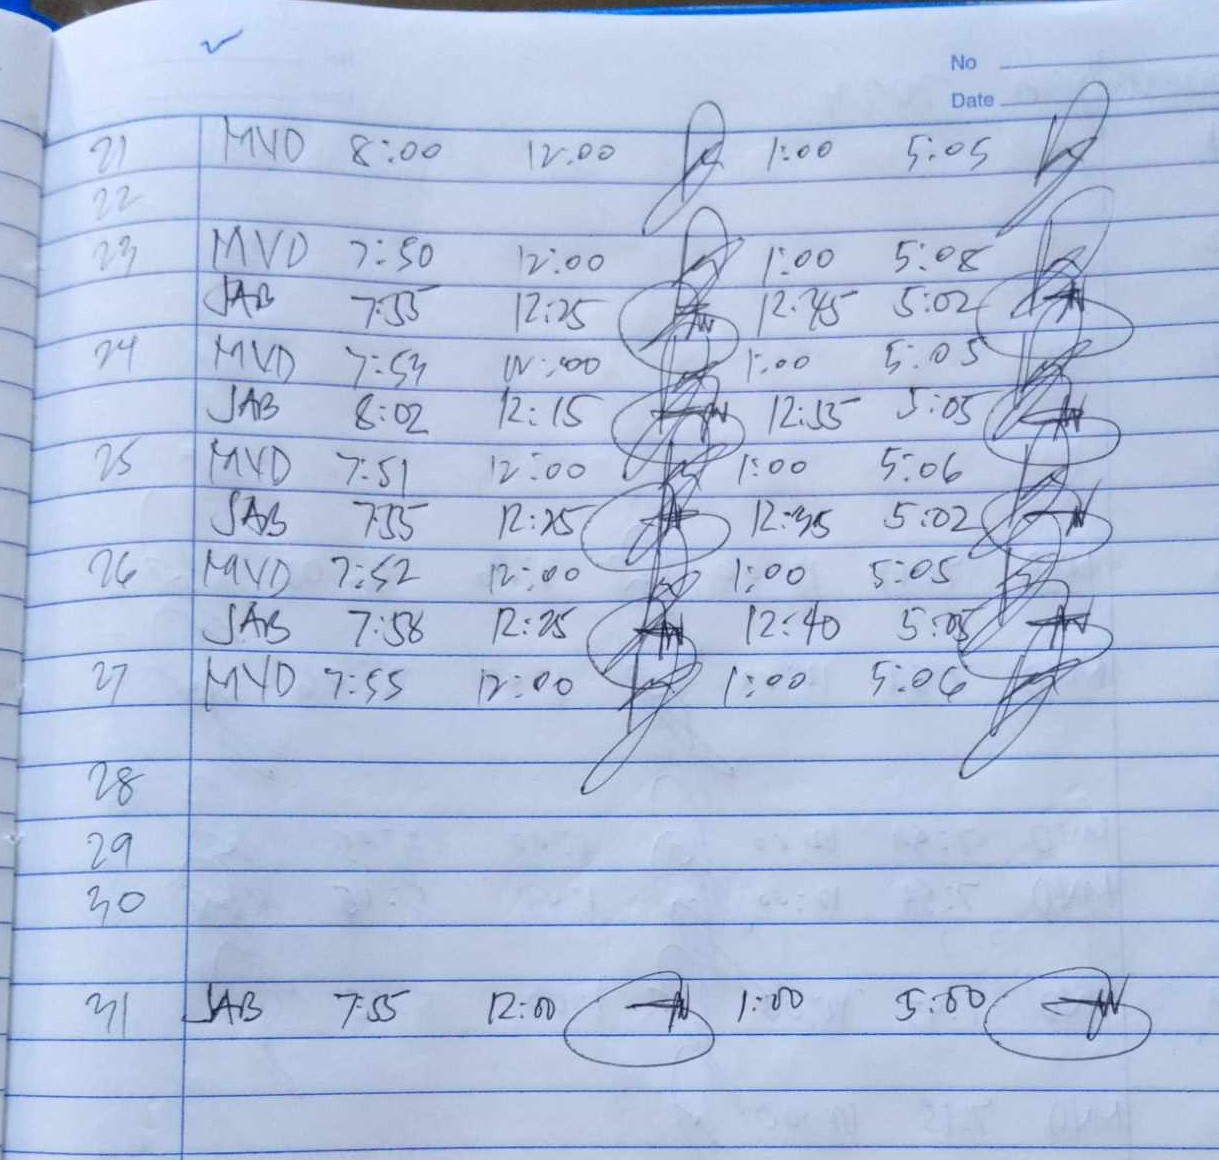 No
Date
21 MVD 8:00 12:00 1:00 5:05
22
23 MVD 7:50 12:00 1:00 5:08
JAB 7:55 12:25 12:45 5:02
24 MVD 7:53 12:00 1:00 5:05
JAB 8:02 12:15 12:35 5:05
25 MVD 7:51 12:00 1:00 5:06
JAB 7:55 12:25 12:35 5:02
26 MVD 7:52 12:00 1:00 5:05
JAB 7:58 12:25 12:40 5:05
27 MVD 7:55 12:00 1:00 5:06
28
29
30
31 JAB 7:55 12:00 1:00 5:00